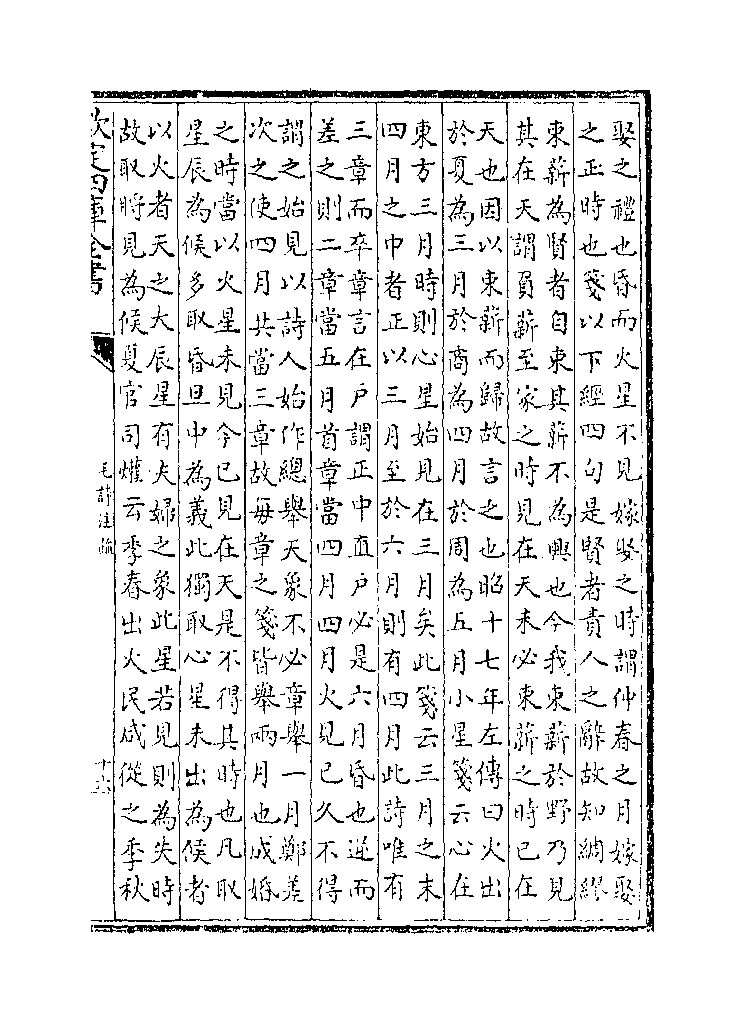 娶之禮也昏而火星不見嫁娶之時謂仲春之月嫁娶
之正時也箋以下經四句是賢者責人之辭故知綢繆
束薪為賢者自束其薪不為興也今我束薪於野乃見
其在天謂負薪至家之時見在天未必束薪之時已在
天也因以束薪而歸故言之也昭十七年左傳曰火出
於夏為三月於商為四月於周為五月小星箋云心在
東方三月時則心星始見在三月矣此箋云三月之末
四月之中者正以三月至於六月則有四月此詩唯有
三章而卒章言在戶謂正中直戶必是六月昏也逆而
差之則二章當五月首章當四月四月火見已久不得
謂之始見以詩人始作總舉天象不必章舉一月鄭差
次之使四月共當三章故每章之箋皆舉兩月也成婚
之時當以火星未見今已見在天是不得其時也凡取
星辰為候多取昏旦中為義此獨取心星未出為候者
以火者天之大辰星有夫婦之象此星若見則為失時
故取將見為候夏官司爟云季春出火民咸從之季秋
欽定四庫全書
毛詩注疏
十六